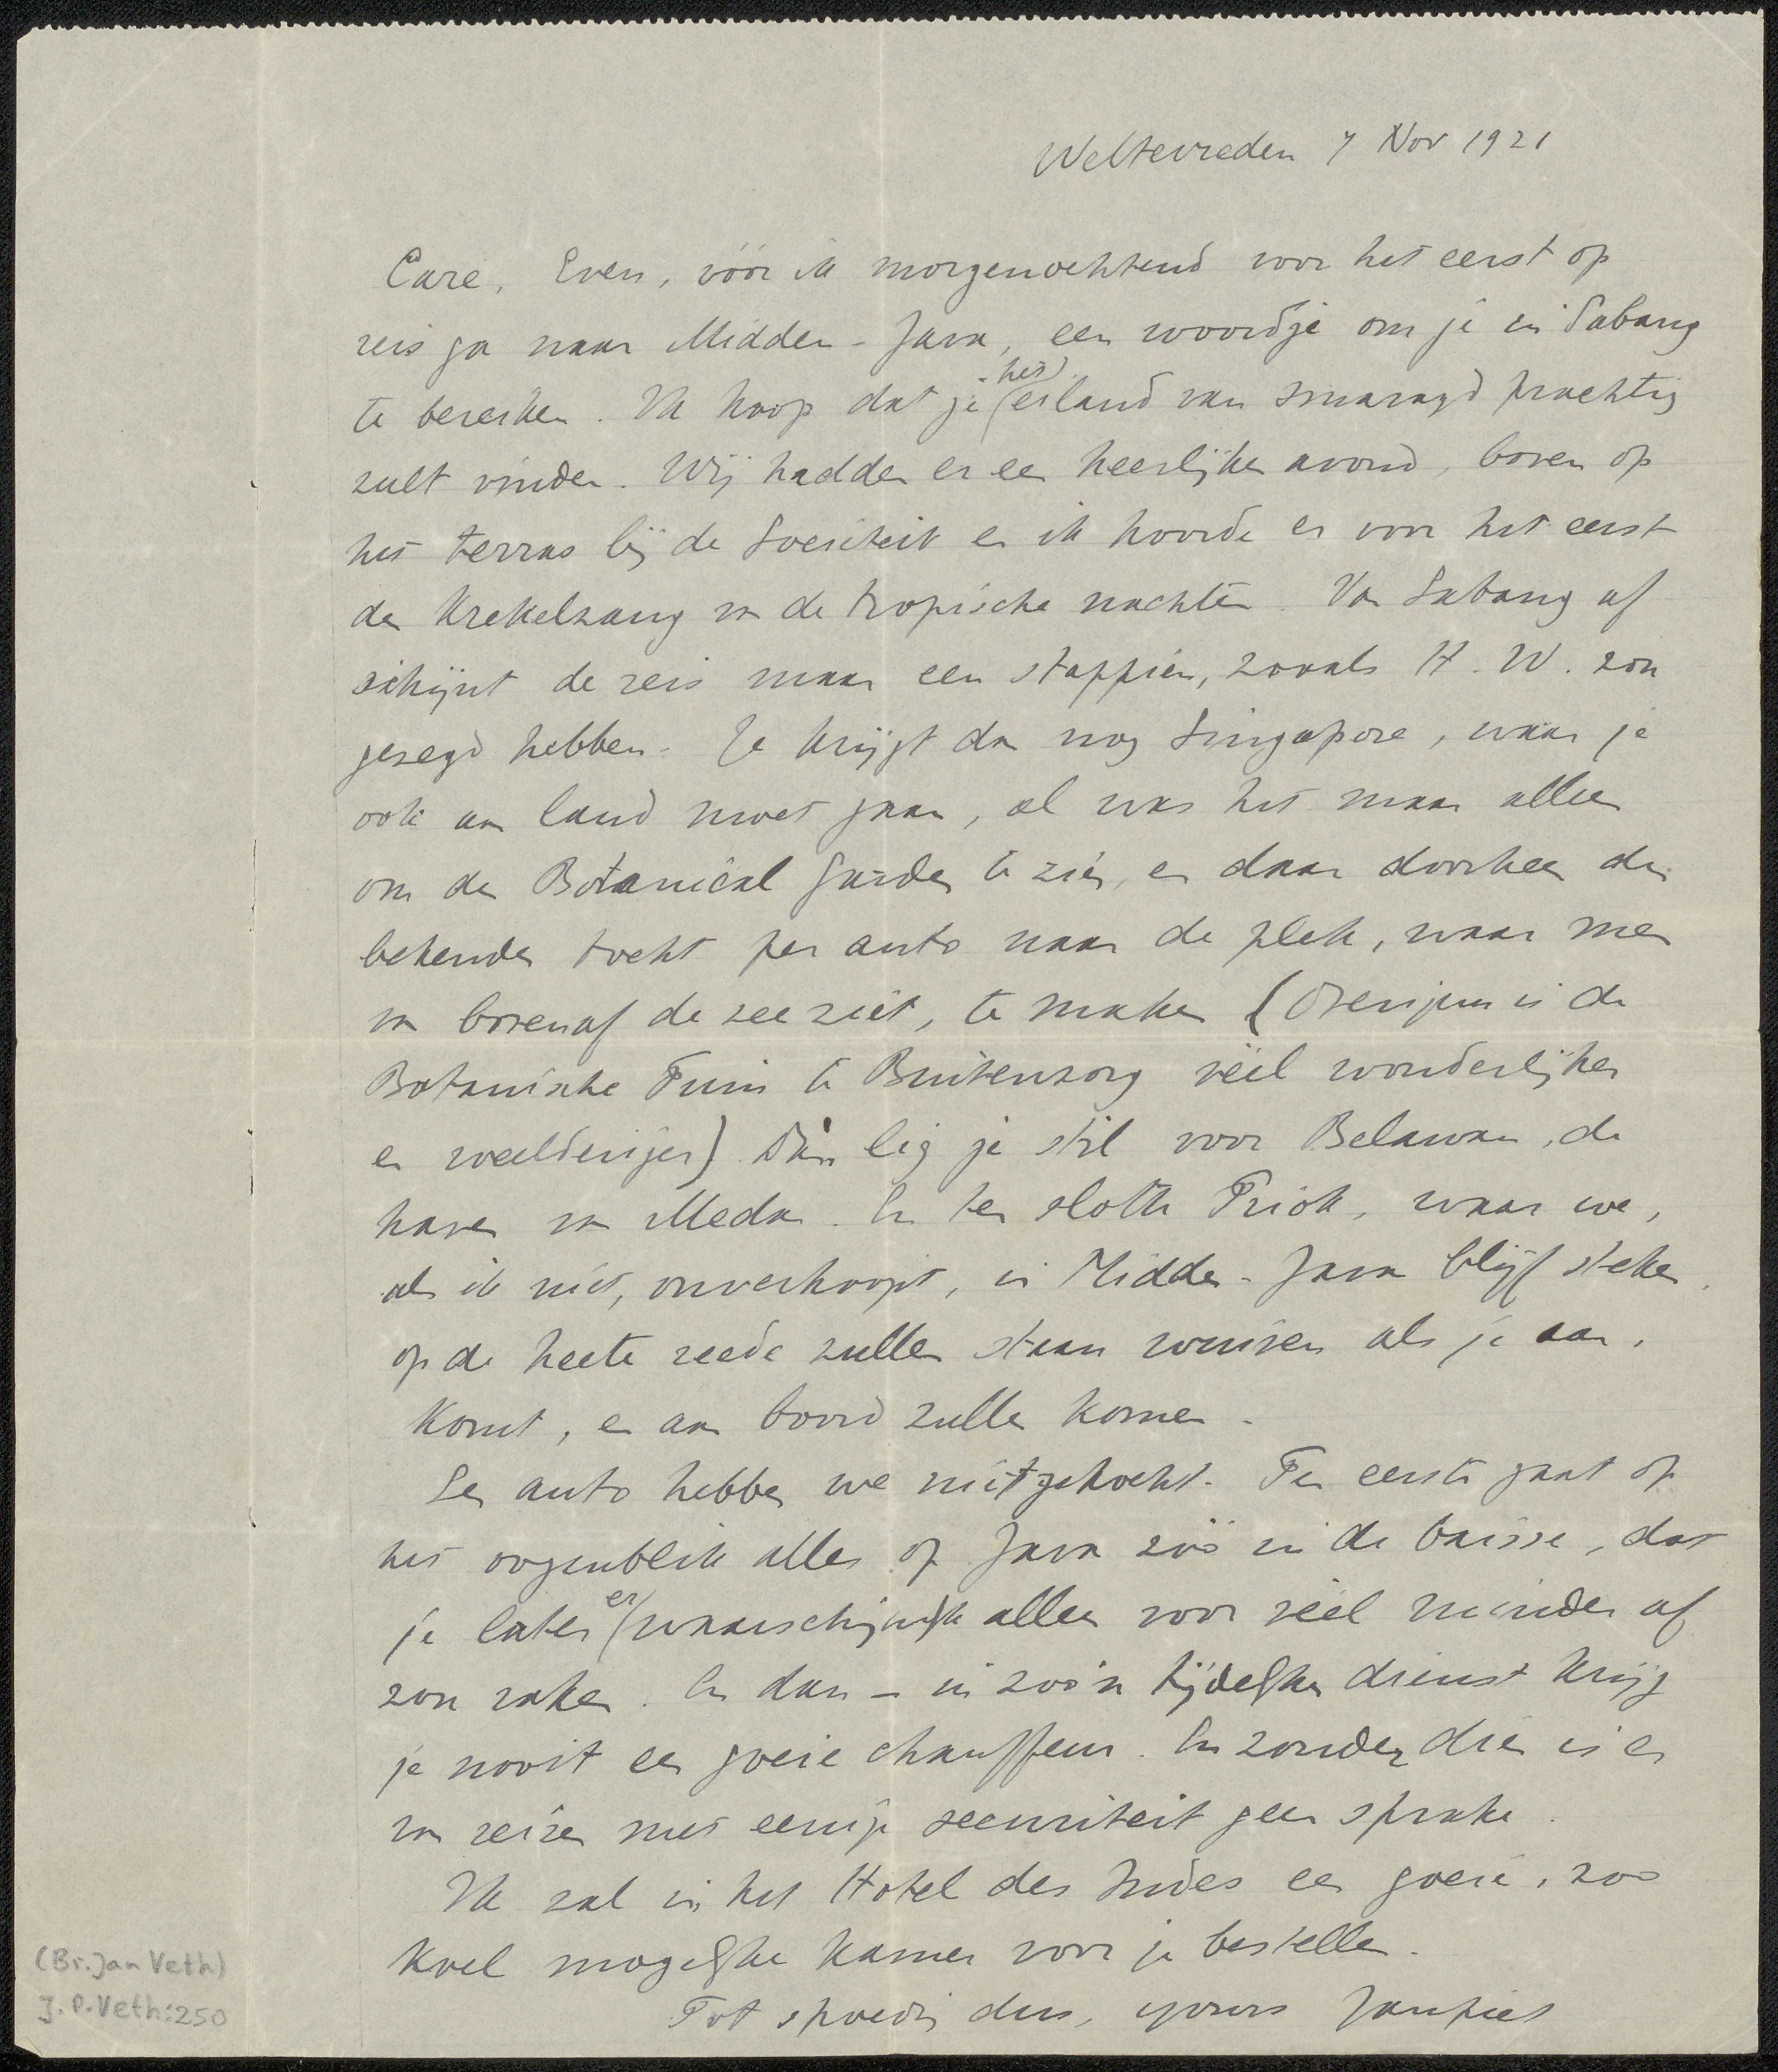 Weltevreden 7 Nov 1921
Care, Even, vóór ik morgenochtend voor het eerst op
reis ga naar Midden-Java, een woordje om je in Sabang
te bereiken. Ik hoop dat je het eiland van smaragd prachtig
zult vinden. Wij hadden er een heerlijken avond, boven op
het terras bij de Soesiteit en ik hoorde er voor het eerst
den krekelzang van de tropische nachten. Van Sabang af
schijnt de reis maar een stappien, zooals H. W. zou
gezegd hebben. Je krijgt dan nog Singapore, waar je
ook aan land moet gaan, al was het maar alleen
om den Botanical Garden te zien, en daar doorheen den
bekenden tocht per auto naar de plek, waar men
van bovenaf de zee ziet, te maken (Overigens is de
Botanische Tuin te Buitenzorg véél wonderlijker
en weelderiger) Dàn lig je stil voor Belawan, de
haven van Medan. En ten slotte Priok, waar we,
als ik niet, onverhoopt, in Midden-Java blijf steken,
op de heete reede zullen staan wuiven als je aan-
komt, en aan boord zullen komen.
Een auto hebben we niet gekocht. Ten eerste gaat op
het oogenblik alles op Java zóó in de baisse, dat
je later er waarschijnlijk alleen voor véél minder af
zou raken. En dan – in zoo'n tijdelijken dienst krijg
je nooit een goeie chauffeur. En zonder dien is er
van reizen met eenige securiteit geen sprake.
Ik zal in het Hotel des Indes een goeie, zoo
koel mogelijke kamer voor je bestellen.
Tot spoedig dus, yours Janpiet
(Br. Jan Veth)
J. P. Veth: 250